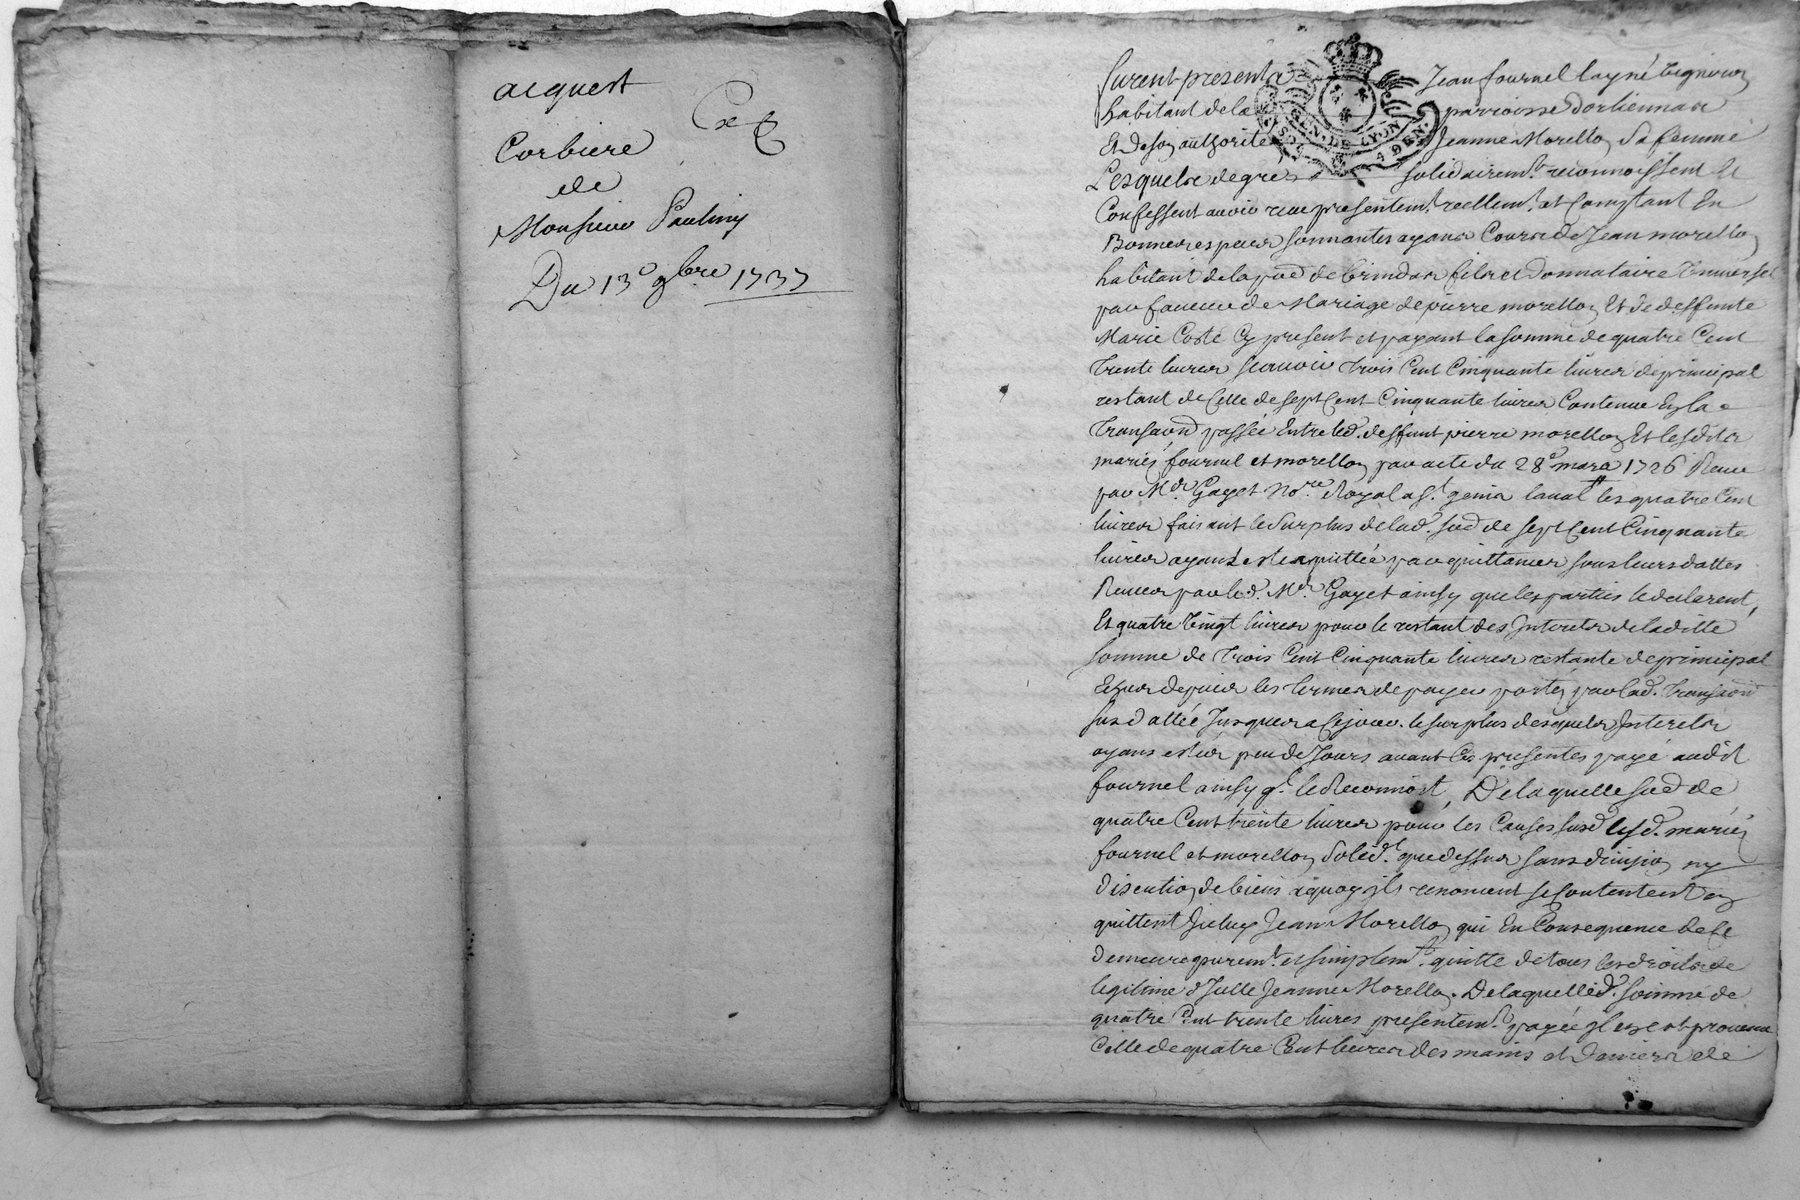 acquest
Corbiere
de
Monsieur Pauliny
Du 13e 9bre 1737
furent presents Jean fournel layné vigneron
habitant de la parroisse dorliennas
Et de son authorité Jeanne Morellon sa femme
Lesquels de gré solidairemt. reconnoissent et
Confessent avoir receu presentemt. reellemt. et Comptant En
Bonnes especes sonnantes ayans Cours de Jean morellon
habitant de la psse de brindas fils et donnataire Universel
par faveur de Mariage de pierre morellon Et de deffunte
Marie Coste Cy present et payant la somme de quatre Cent
trente livres scavoir trois Cent Cinquante livres de principal
restant de Celle de sept Cent Cinquante livres Contenue En la
transaon passée Entre led. deffunt pierre morellon Et lesdits
mariés fournel et morellon par acte du 28e mars 1726 Receu
par Me. Gayet Nore. Royal a St. genis laval les quatre Cent
livres faisant le surplus de lad. somme de sept Cent Cinquante
livres ayans esté aquittée par quittances sous leurs dattes
Receues par led. Me. Gayet ainsy que les parties le declarent,
Et quatre vingt livres pour le restant des Interets de laditte
somme de trois Cent Cinquante livres restante de principal
Echus depuis les termes de payer portez par lad. transaon
susdattée Jusques a Ce jour. le surplus desquels Interets
ayans esté peu de Jours avant Ces presentes payé audit
fournel ainsy ql. le Reconnoit, De laquelle somme de
quatre Cent trente livres pour les Causes susd. lesd. mariés
fournel et morellon solidt. que dessus sans division ny
discution de biens a quoy ils renoncent se Contentent en
quittent Jceluy Jean Morellon qui En Consequence de Ce
demeure puremt. et simplemt. quitte de tous les droits de
legitime d'Jcelle Jeanne Morellon. De laquelle d. somme de
quatre Cent trente livres presentemt. payée il en est provenu
Celle de quatre Cent livres des mains et deniers de